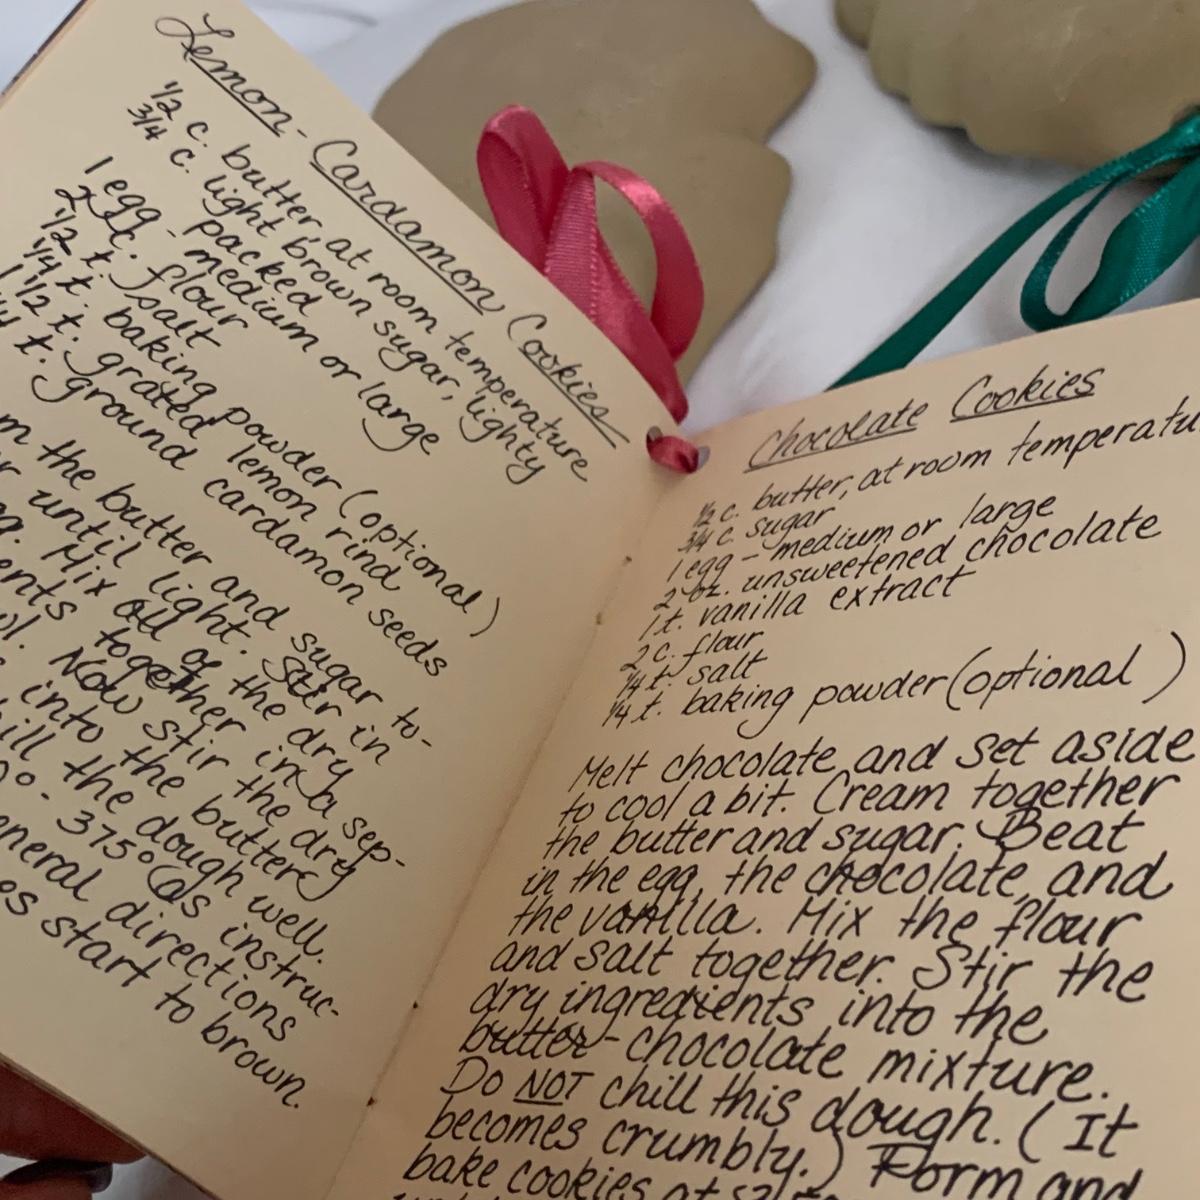 Lemon-Cardamon Cookies
1/2 c. butter, at room temperature
3/4 c. light brown sugar, lightly
packed
1 egg - medium or large
2 c. flour
1/2 t. salt
1/4 t. baking powder (optional)
1 1/2 t. grated lemon rind
t. ground cardamon seeds
the butter and sugar to-
until light. Stir in
Mix all of the dry
together in a sep-
Now stir the dry
into the buttery
the dough well.
375° (as instruc-
directions
start to brown.
Chocolate Cookies
1/2 c. butter, at room temperatu
3/4 c. sugar
1 egg - medium or large
2 oz. unsweetened chocolate
1 t. vanilla extract
2 c. flour
1/4 t. salt
1/4 t. baking powder (optional)
Melt chocolate and set aside
to cool a bit. Cream together
the butter and sugar. Beat
in the egg, the chocolate, and
the vanilla. Mix the flour
and salt together. Stir the
dry ingredients into the
butter-chocolate mixture.
Do NOT chill this dough. (It
becomes crumbly.) Form and
bake cookies at